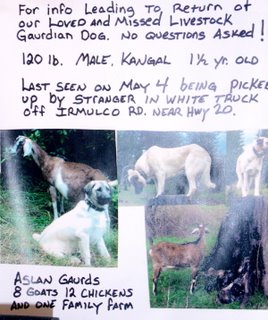 For info Leading To Return of
our Loved and Missed Livestock
Gaurdian Dog. No Questions Asked!
120 lb. Male, Kangal 1½ yr. old
Last seen on May 4 being picked
up by stranger in white truck
off Irmulco Rd. near Hwy 20.
Aslan Gaurds
8 Goats 12 Chickens
and one family farm